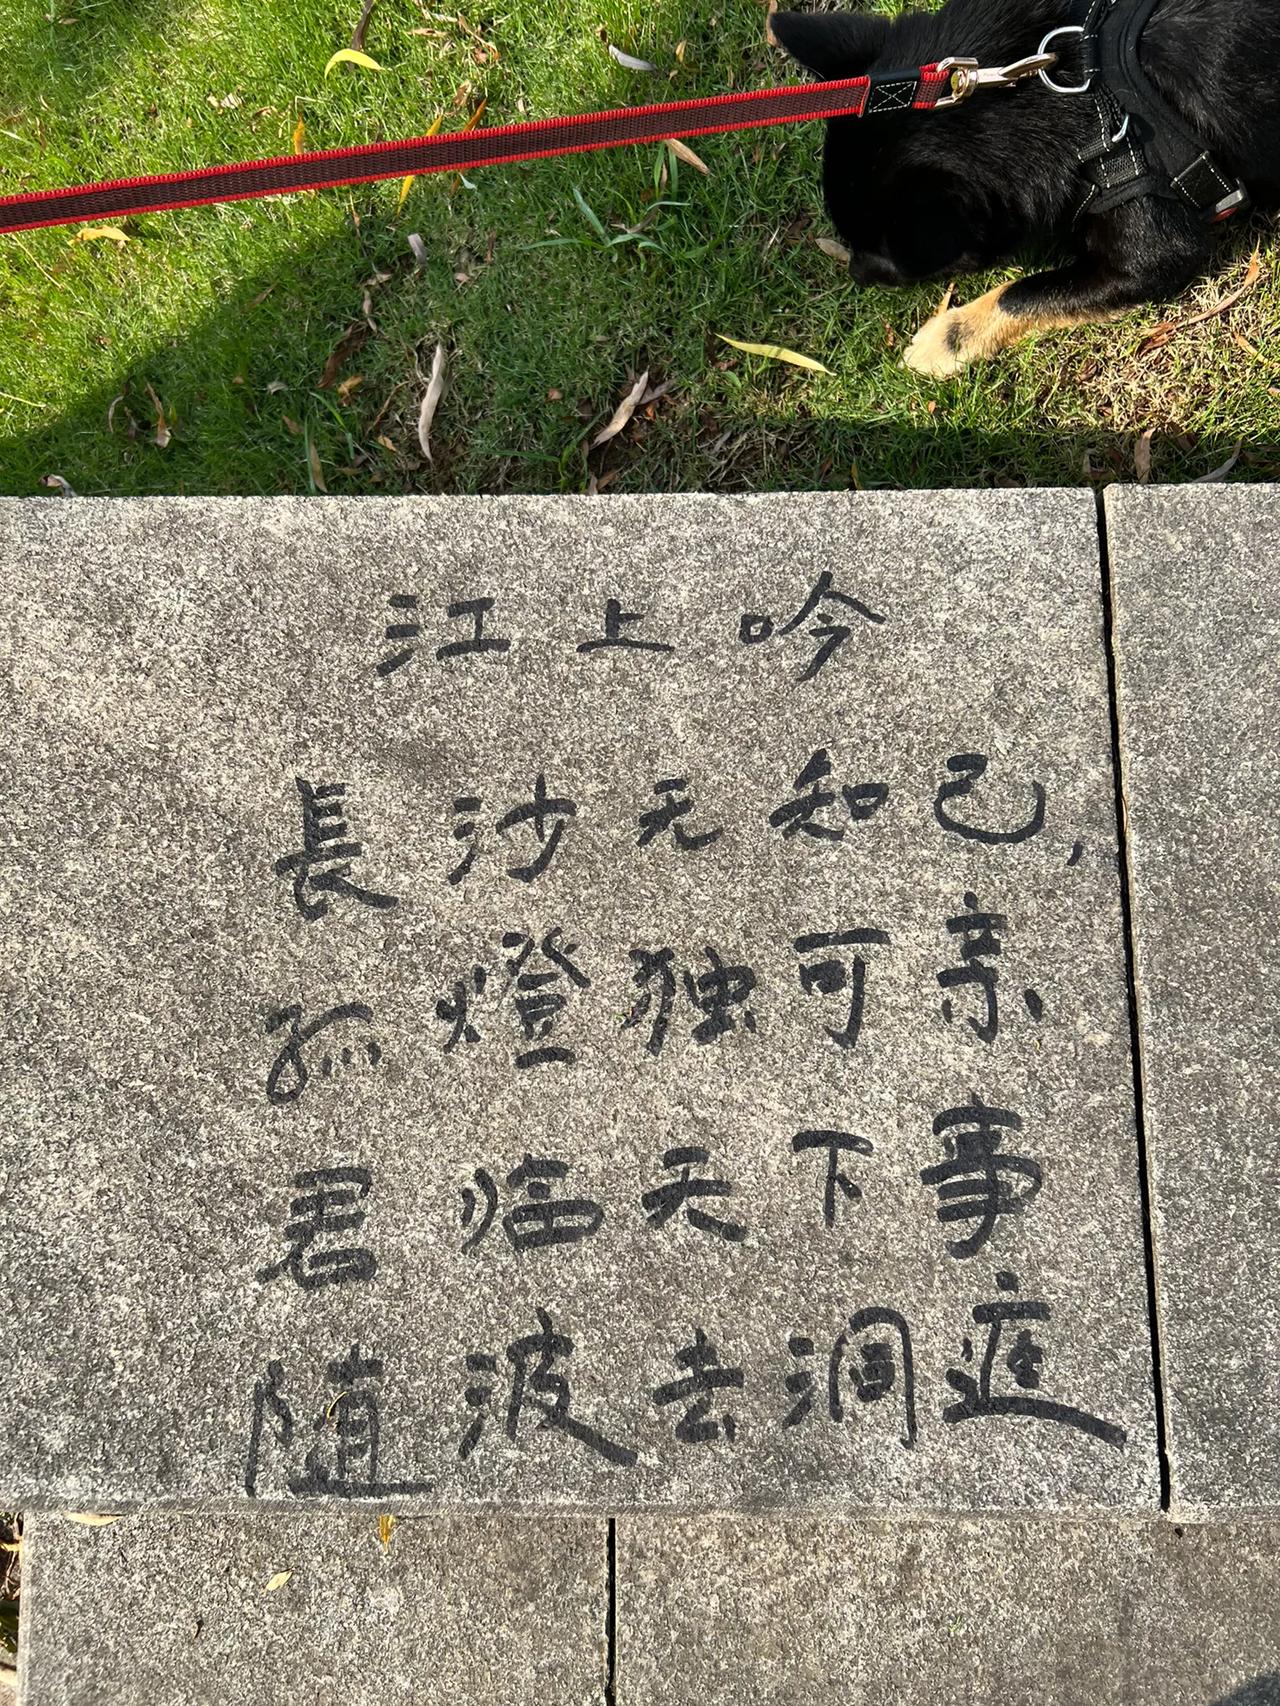 江上吟
長沙无知己,
孤燈独可亲
君临天下事
随波去洞庭